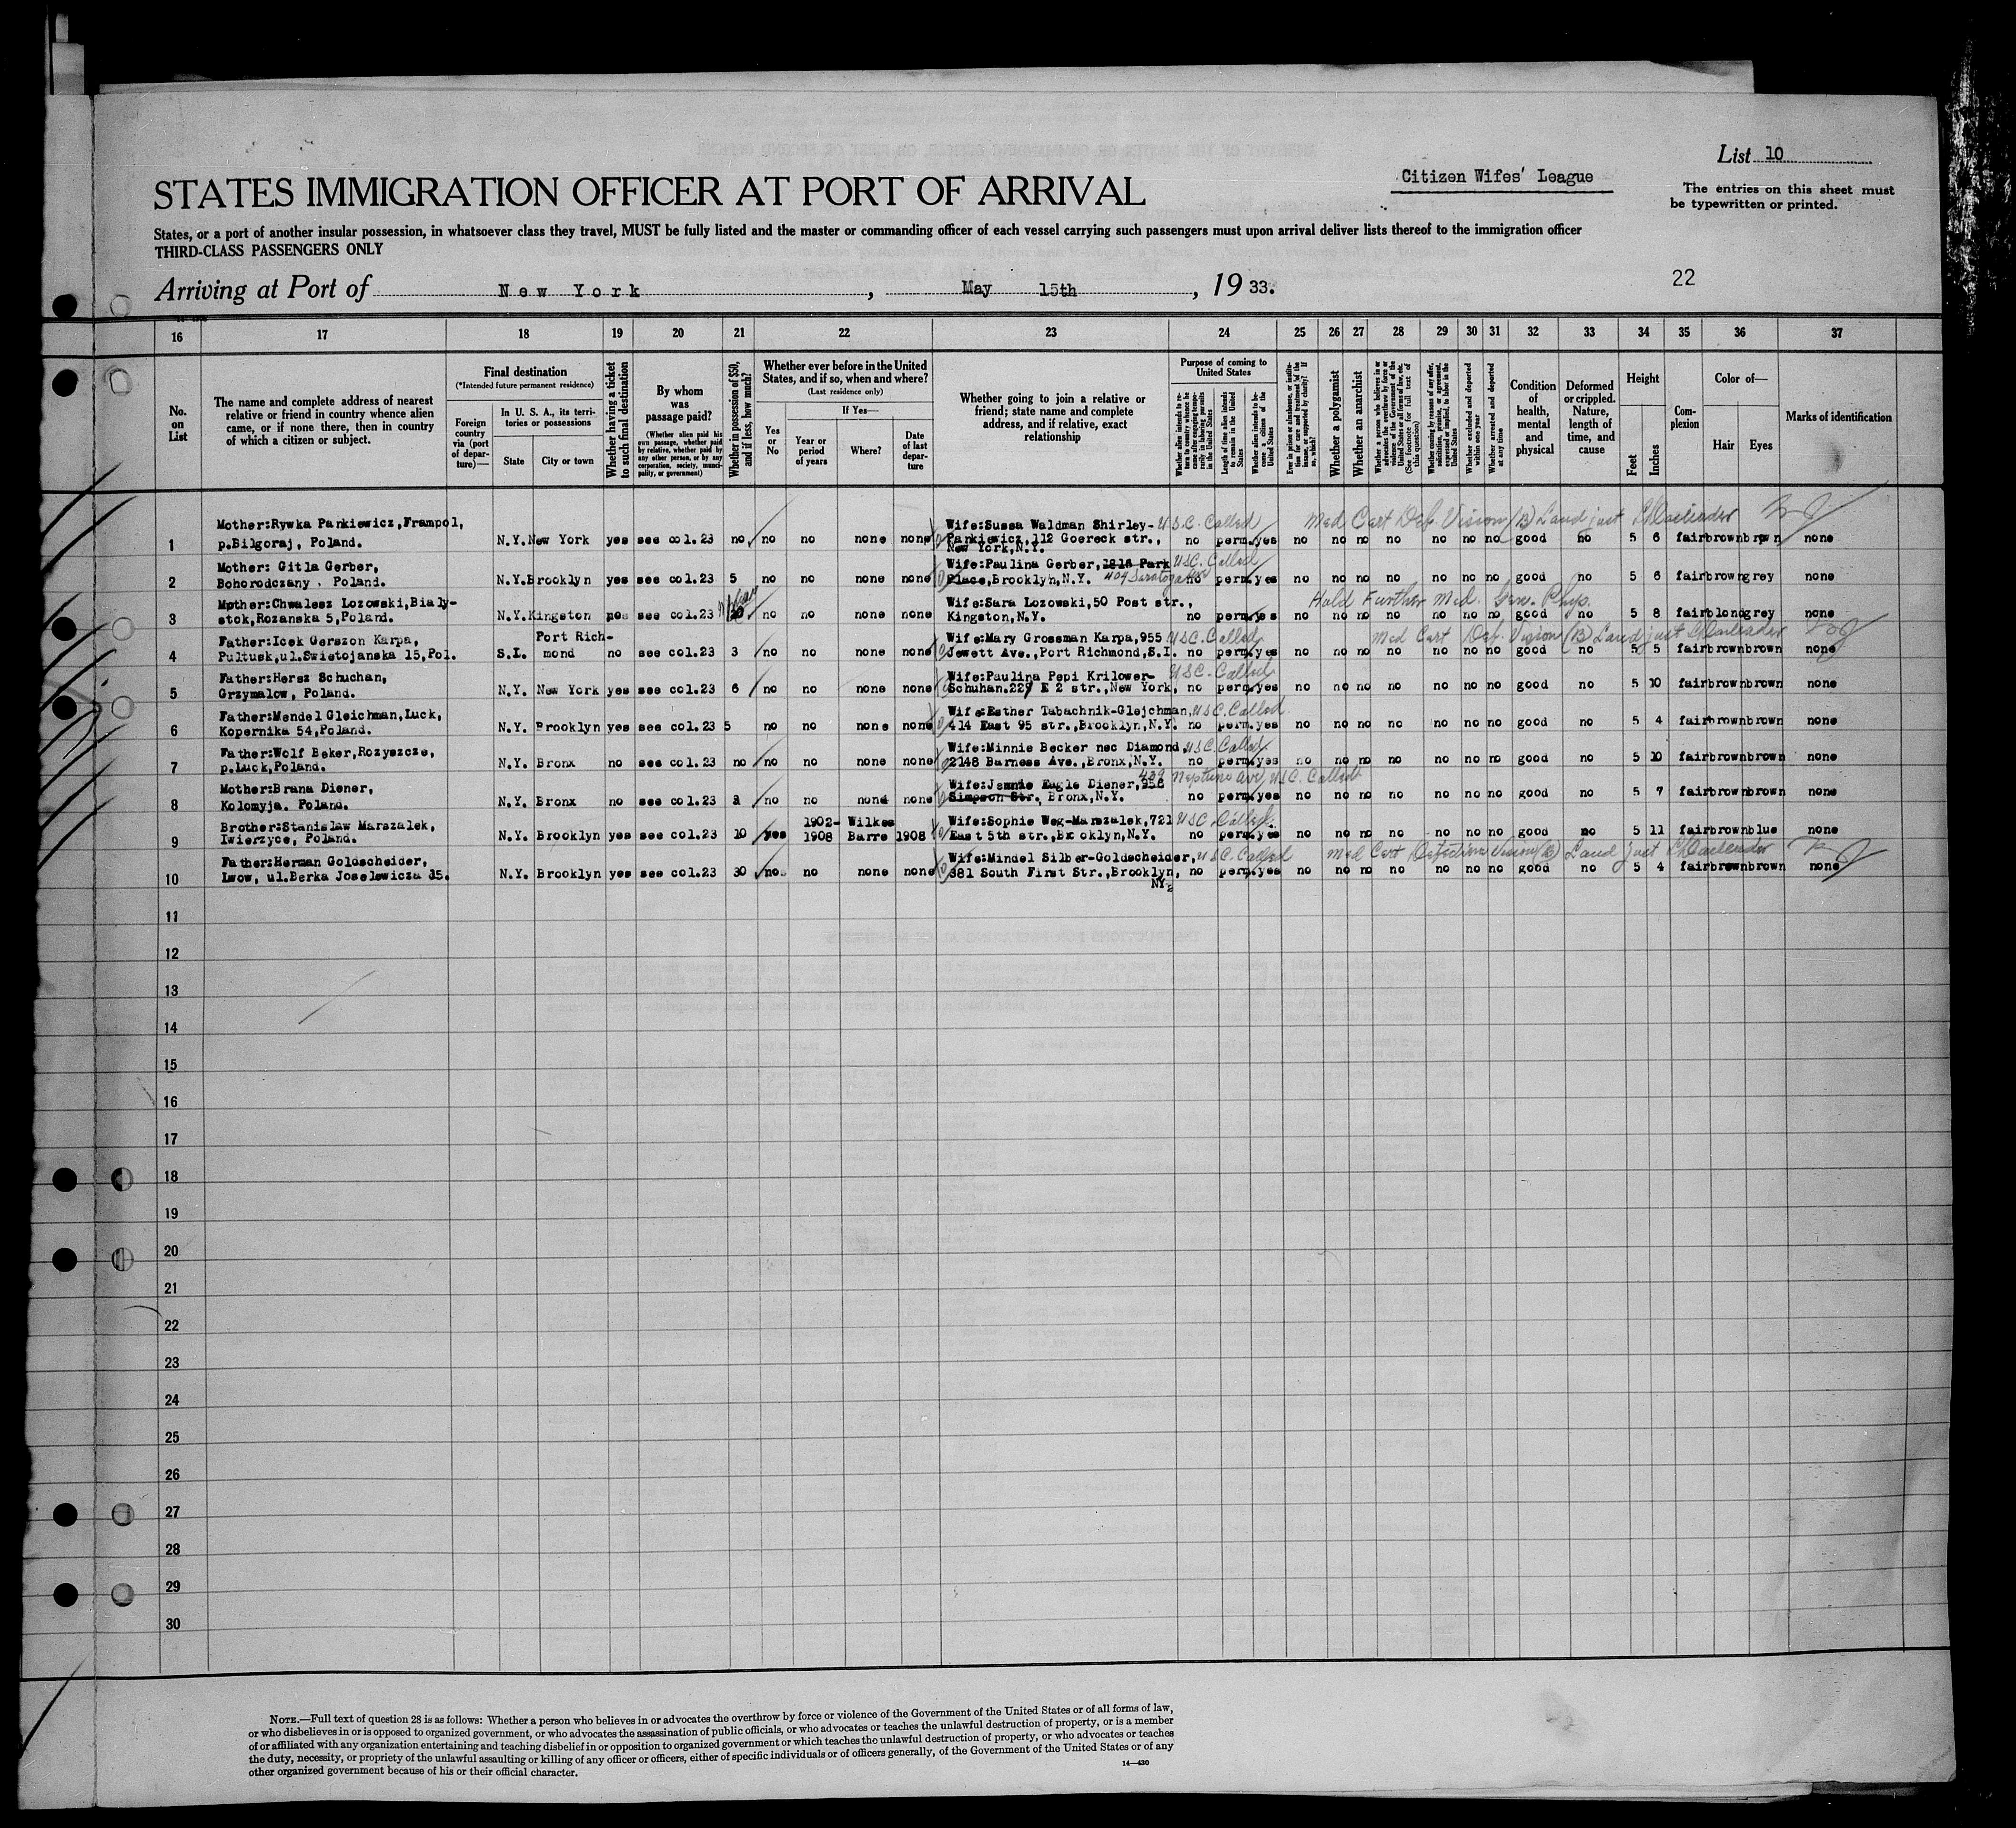 List 10
Citizen Wifes' League
STATES IMMIGRATION OFFICER AT PORT OF ARRIVAL
The entries on this sheet must
be typewritten or printed.
States, or a port of another insular possession, in whatsoever class they travel, MUST be fully listed and the master or commanding officer of each vessel carrying such passengers must upon arrival deliver lists thereof to the immigration officer
THIRD-CLASS PASSENGERS ONLY
Arriving at Port of New York, May 15th, 1933.
22
16 17 18 19 20 21 22 23 24 25 26 27 28 29 30 31 32 33 34 35 36 37
No.
on
List
The name and complete address of nearest
relative or friend in country whence alien
came, or if none there, then in country
of which a citizen or subject.
Final destination
(*Intended future permanent residence)
Foreign
country
via (port
of depar-
ture)—
In U. S. A., its terri-
tories or possessions
State
City or town
Whether having a ticket
to such final destination
By whom
was
passage paid?
(Whether alien paid his
own passage, whether paid
by relative, whether paid by
any other person, or by any
corporation, society, munici-
pality, or government)
Whether in possession of $50,
and if less, how much?
Whether ever before in the United
States, and if so, when and where?
(Last residence only)
Yes
or
No
If Yes—
Year or
period
of years
Where?
Date
of last
depar-
ture
Whether going to join a relative or
friend; state name and complete
address, and if relative, exact
relationship
Purpose of coming to
United States
Whether alien intends to re-
turn to country whence he
came after engaging tempo-
rarily in laboring pursuits
in the United States
Length of time alien intends
to remain in the United
States
Whether alien intends to be-
come a citizen of the
United States
Ever in prison or almshouse, or institu-
tion for care and treatment of the
insane, or supported by charity? If
so, which?
Whether a polygamist
Whether an anarchist
Whether a person who believes in or
advocates the overthrow by force or
violence of the Government of the
United States or all forms of law, etc.
(See footnote for full text of
this question)
Whether coming by reason of any offer,
solicitation, promise, or agreement,
expressed or implied, to labor in the
United States
Whether excluded and deported
within one year
Whether arrested and deported
at any time
Condition
of
health,
mental
and
physical
Deformed
or crippled.
Nature,
length of
time, and
cause
Height
Feet
Inches
Com-
plexion
Color of—
Hair
Eyes
Marks of identification
Mother:Rywka Parkiewicz,Frampol, Wife:Sussa Waldman Shirley- U.S.C. Called Med Cert Def. Vision (B) Land just
1 p.Bilgoraj, Poland. N.Y. New York yes see col.23 no no no none none Parkiewicz,112 Goereck str., no perm. yes no no no no no no no good no 5 6 fair brown brown none
New York,N.Y.
Mother: Gitla Gerber, Wife:Paulina Gerber,1816 Park USC. Called
2 Bohorodczany, Poland. N.Y. Brooklyn yes see col.23 5 no no none none Place,Brooklyn,N.Y. 404 Saratoga Ave no perm. yes no no no no no no no good no 5 6 fair brown grey none
Mother:Chwalesz Lozowski,Bialy- Wife:Sara Lozowski,50 Post str., Hold Further Med. Gen. Phys.
3 stok,Rozanska 5,Poland. N.Y. Kingston yes see col.23 no no none none Kingston,N.Y. no perm. yes no no no no no no no good no 5 8 fair blond grey none
Father:Icek Gerszon Karpa, Port Rich- Wife:Mary Grossman Karpa,955 U.S.C. Called Med Cert Def. Vision (B) Land just
4 Pultusk,ul.Swietojanska 15,Pol. S.I. mond no see col.23 3 no no none none Jewett Ave.,Port Richmond,S.I. no perm. yes no no no no no no no good no 5 5 fair brown brown none
Father:Hersz Schuchan, Wife:Paulina Pepi Krilower- USC. Called
5 Grzymalow, Poland. N.Y. New York yes see col.23 6 no no none none Schuhan.229 E 2 str.,New York, no perm. yes no no no no no no no good no 5 10 fair brown brown none
Father:Mendel Gleichman,Luck, Wife:Esther Tabachnik-Glejchman, U.S.C. Called
6 Kopernika 54,Poland. N.Y. Brooklyn yes see col.23 5 no no none none 414 East 95 str.,Brooklyn,N.Y. no perm. yes no no no no no no no good no 5 4 fair brown brown none
Father:Wolf Beker,Rozyszcze, Wife:Minnie Becker nec Diamond, U.S.C. Called
7 p.Luck,Poland. N.Y. Bronx no see col.23 no no no none none 2148 Barness Ave.,Bronx,N.Y. no perm. yes no no no no no no no good no 5 10 fair brown brown none
Mother:Brana Diener, Wife:Jennie Eagle Diener,956 409 Neptune Ave, U.S.C. Called
8 Kolomyja. Poland. N.Y. Bronx no see col.23 2 no no none none Simpson Str., Bronx,N.Y. no perm. yes no no no no no no no good no 5 7 fair brown brown none
Brother:Stanislaw Marszalek, 1902- Wilkes Wife:Sophie Weg-Marszalek,721 USC. Called.
9 Iwierzyce, Poland. N.Y. Brooklyn yes see col.23 10 yes 1908 Barre 1908 East 5th str.,Brooklyn,N.Y. no perm. yes no no no no no no no good no 5 11 fair brown blue none
Father:Herman Goldscheider, Wife:Mindel Silber-Goldscheider, U.S.C. Called Med Cert Defective Vision (B) Land just
10 Lwow, ul.Berka Joselewicza 15. N.Y. Brooklyn yes see col.23 30 no. no none none 381 South First Str.,Brooklyn, no perm. yes no no no no no no no good no 5 4 fair brown brown none
NY.
11
12
13
14
15
16
17
18
19
20
21
22
23
24
25
26
27
28
29
30
NOTE.—Full text of question 28 is as follows: Whether a person who believes in or advocates the overthrow by force or violence of the Government of the United States or of all forms of law,
or who disbelieves in or is opposed to organized government, or who advocates the assassination of public officials, or who advocates or teaches the unlawful destruction of property, or is a member
of or affiliated with any organization entertaining and teaching disbelief in or opposition to organized government or which teaches the unlawful destruction of property, or who advocates or teaches
the duty, necessity, or propriety of the unlawful assaulting or killing of any officer or officers, either of specific individuals or of officers generally, of the Government of the United States or of any
other organized government because of his or their official character.
14—430